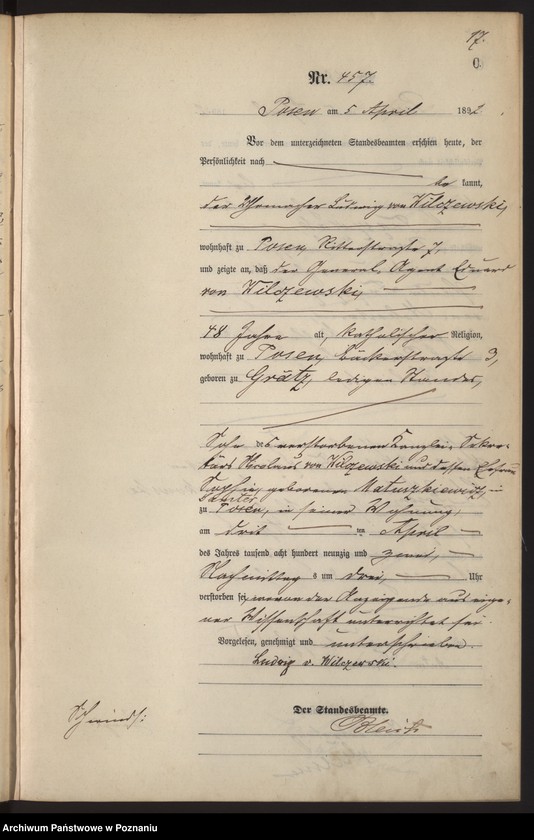 17.
C.
Nr. 457.
Posen am 5 April 1892
Vor dem unterzeichneten Standesbeamten erschien heute, der
Persönlichkeit nach
be kannt,
der Uhrmacher Ludwig von Wilczewski,
wohnhaft zu Posen, Ritterstraße 7,
und zeigte an, daß der General-Agent Eduard
von Wilczewski,
48 Jahre alt, katholischer Religion,
wohnhaft zu Posen, Bäckerstraße 3,
geboren zu Grätz, ledigen Standes,
Sohn des verstorbenen Kanzlei-Sekre-
tärs Nicolaus von Wilczewski und dessen Ehefrau
Sophie, geborenen Matuszkiewicz, in
zu Posen, in seiner Wohnung,
am drit ten April
des Jahres tausend acht hundert neunzig und zwei,
Nachmittag s um drei, Uhr
verstorben sei, wovon der Anzeigende aus eige-
ner Wissenschaft unterrichtet sei.
Vorgelesen, genehmigt und unterschrieben
Ludwig v. Wilczewski.
Der Standesbeamte.
Archiwum Państwowe w Poznaniu